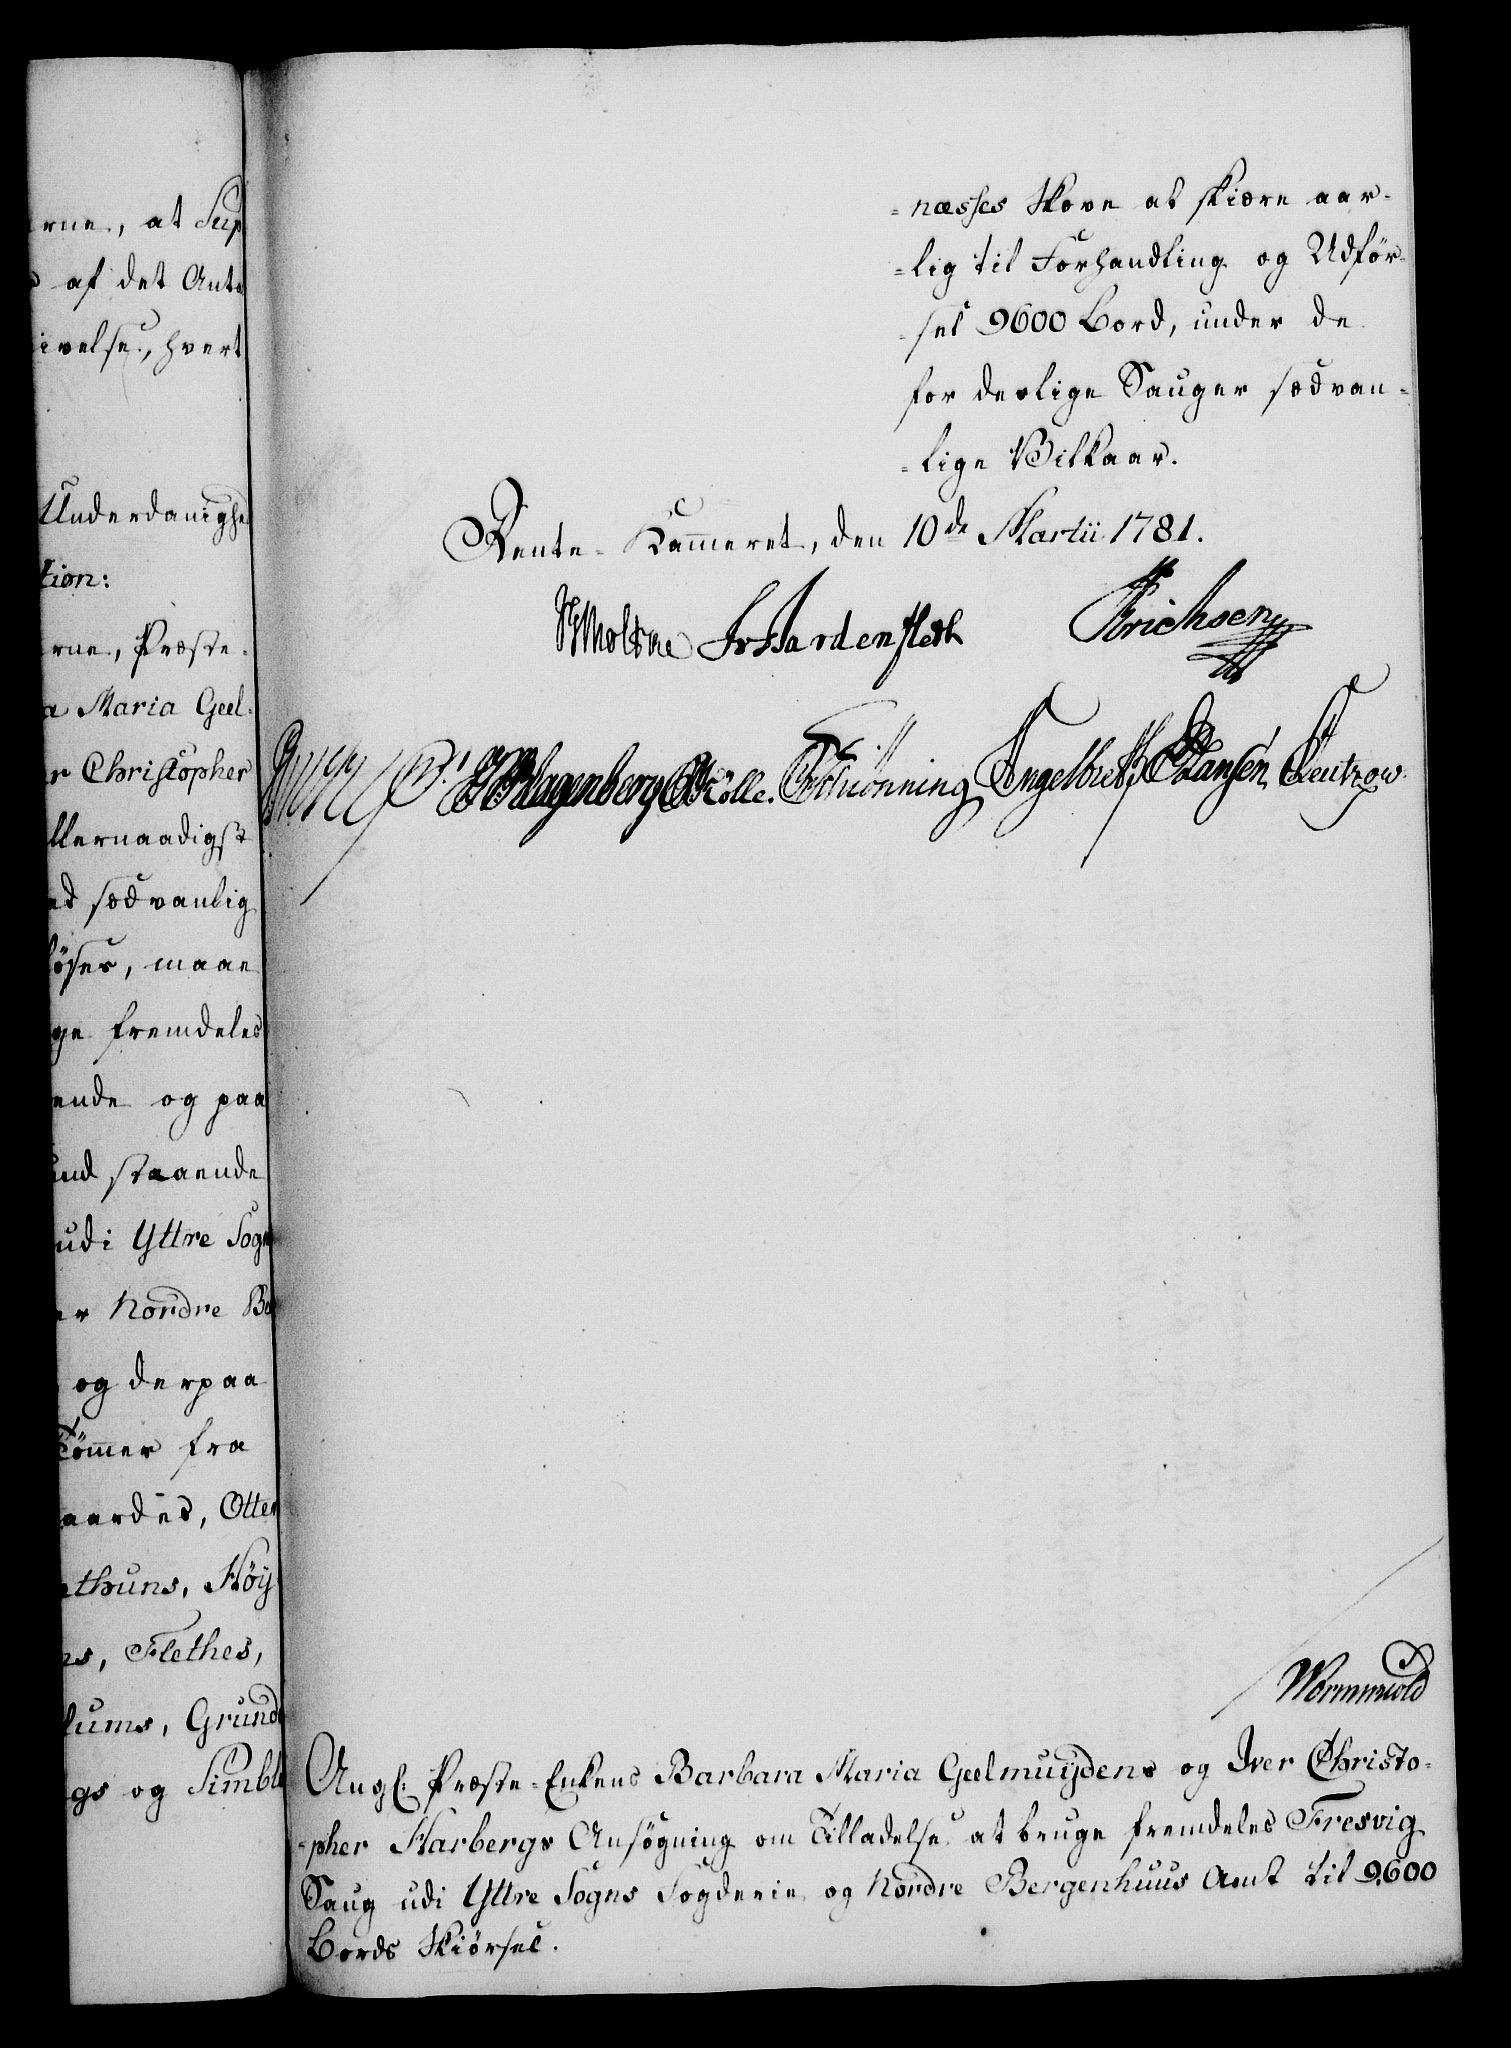 rne, at Sup
af det Ante
ivelse, hvert
Underdanighe
tion:
rne, Præste-
a Maria Geel-
r Christopher
llernaadigst
ed sædvanlig
löses, maae
ge fremdeles
ende og paa
und staaende
udi Yttre Sogn
er Nordre Be
og derpaa
Tömmer fra
aardes, Otter
thuns, Höy
ns, Flethes,
lums, Grund
gs og Simble
-næsses Skove at skiære aar-
-lig til Forhandling og Udför-
-sel 9600 Bord, under de
for deslige Sauger sædvan-
-lige Vilkaar.
Rente-Kammeret, den 10de Martii 1781.
Moltke Fr Hardenfleth Erichsen
Klagenberg Kölle. Schiönning Engelbret Hansen Leutzow.
Wormuold
Ang: Præste-Enkens Barbara Maria Geelmuijdens og Iver Christo-
-pher Harbergs Ansögning om Tilladelse at bruge fremdeles Fresvig
Saug udi Yttre Sogns Fogderie og Nordre Bergenhuus Amt til 9600
Bords Skiörsel.